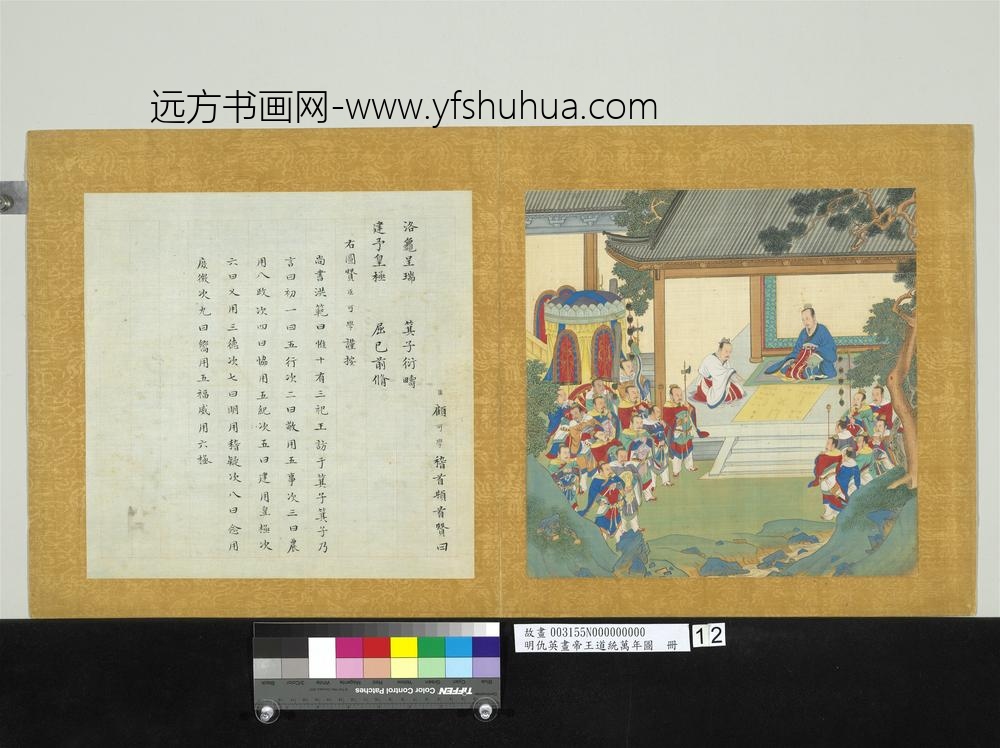 远方书画网-www.yfshuhua.com
臣顧可學稽首頓首贊曰
洛龜呈瑞 箕子衍疇
建予皇極 屈已前脩
右圖贊臣可學謹按
尚書洪範曰惟十有三祀王訪于箕子箕子乃
言曰初一曰五行次二曰敬用五事次三曰農
用八政次四曰協用五紀次五曰建用皇極次
六曰乂用三德次七曰明用稽疑次八曰念用
庶徵次九曰嚮用五福威用六極
故畫 003155N000000000
明仇英畫帝王道統萬年圖 冊
12
TIFFEN Color Control Patches
Blue Cyan Green Yellow Red Magenta White 3/Color Black